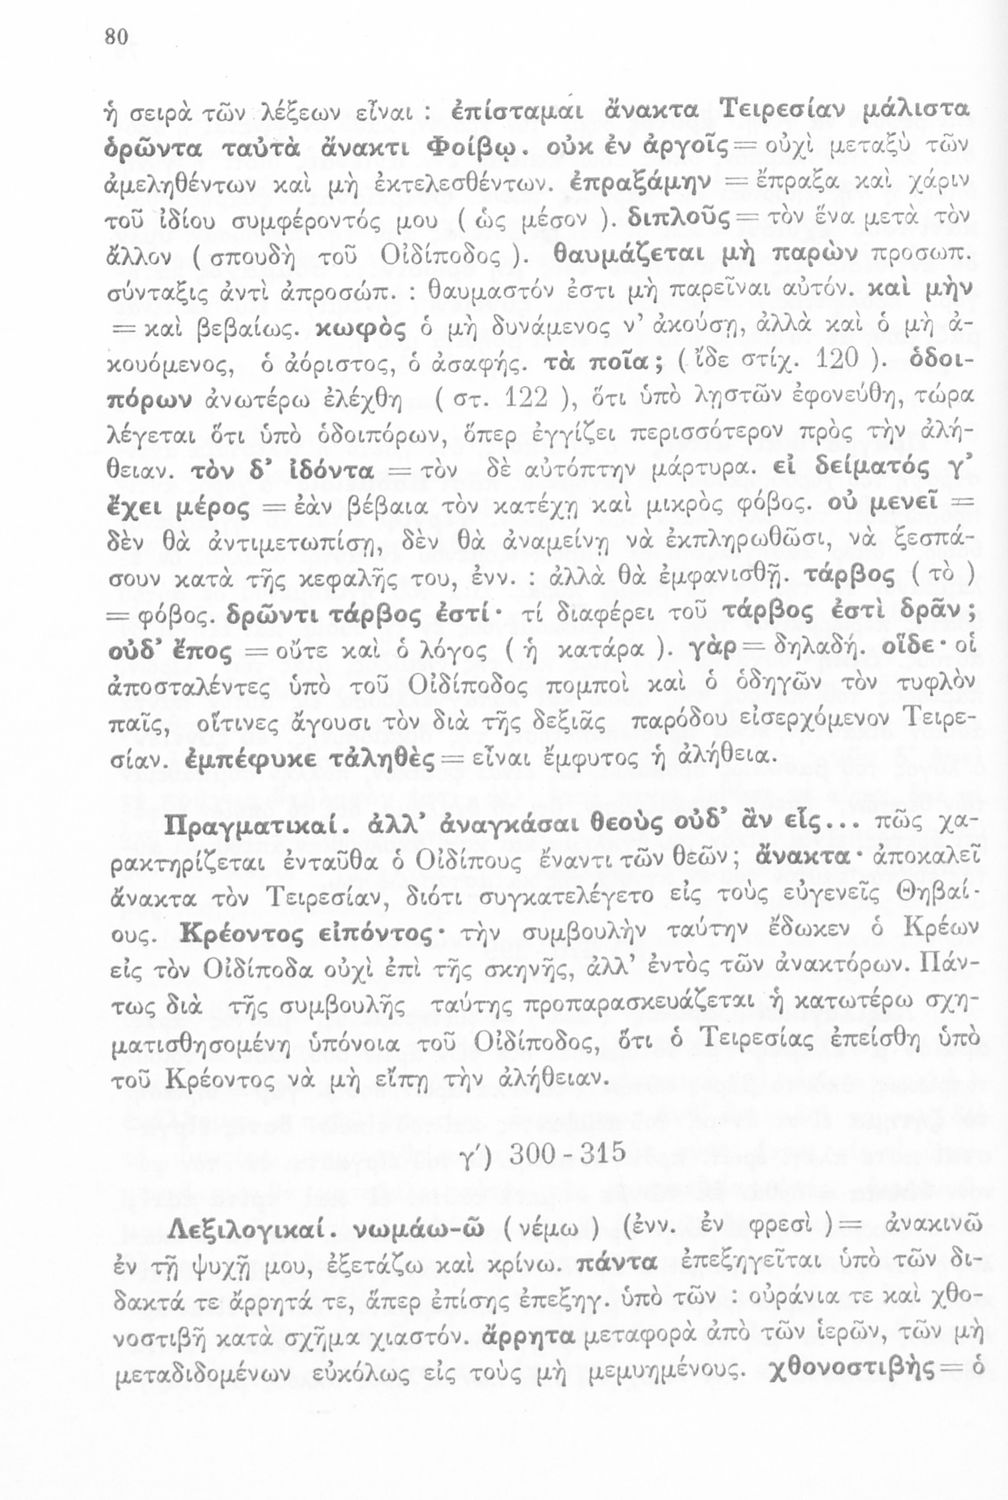 80
ἡ σειρὰ τῶν λέξεων εἶναι : ἐπίσταμαι ἄνακτα Τειρεσίαν μάλιστα
ὁρῶντα ταὐτὰ ἄνακτι Φοίβῳ. οὐκ ἐν ἀργοῖς = οὐχὶ μεταξὺ τῶν
ἀμεληθέντων καὶ μὴ ἐκτελεσθέντων. ἐπραξάμην = ἔπραξα καὶ χάριν
τοῦ ἰδίου συμφέροντός μου ( ὡς μέσον ). διπλοῦς = τὸν ἕνα μετὰ τὸν
ἄλλον ( σπουδὴ τοῦ Οἰδίποδος ). θαυμάζεται μὴ παρὼν προσωπ.
σύνταξις ἀντὶ ἀπροσώπ. : θαυμαστόν ἐστι μὴ παρεῖναι αὐτόν. καὶ μὴν
= καὶ βεβαίως. κωφὸς ὁ μὴ δυνάμενος ν' ἀκούσῃ, ἀλλὰ καὶ ὁ μὴ ἀ-
κουόμενος, ὁ ἀόριστος, ὁ ἀσαφής. τὰ ποῖα ; ( ἴδε στίχ. 120 ). ὁδοι-
πόρων ἀνωτέρω ἐλέχθη ( στ. 122 ), ὅτι ὑπὸ λῃστῶν ἐφονεύθη, τώρα
λέγεται ὅτι ὑπὸ ὁδοιπόρων, ὅπερ ἐγγίζει περισσότερον πρὸς τὴν ἀλή-
θειαν. τὸν δ' ἰδόντα = τὸν δὲ αὐτόπτην μάρτυρα. εἰ δείματός γ'
ἔχει μέρος = ἐὰν βέβαια τὸν κατέχῃ καὶ μικρὸς φόβος. οὐ μενεῖ =
δὲν θὰ ἀντιμετωπίσῃ, δὲν θὰ ἀναμείνῃ νὰ ἐκπληρωθῶσι, νὰ ξεσπά-
σουν κατὰ τῆς κεφαλῆς του, ἐνν. : ἀλλὰ θὰ ἐμφανισθῇ. τάρβος ( τὸ )
= φόβος. δρῶντι τάρβος ἐστί· τί διαφέρει τοῦ τάρβος ἐστὶ δρᾶν ;
οὐδ' ἔπος = οὔτε καὶ ὁ λόγος ( ἡ κατάρα ). γὰρ = δηλαδή. οἵδε· οἱ
ἀποσταλέντες ὑπὸ τοῦ Οἰδίποδος πομποὶ καὶ ὁ ὁδηγῶν τὸν τυφλὸν
παῖς, οἵτινες ἄγουσι τὸν διὰ τῆς δεξιᾶς παρόδου εἰσερχόμενον Τειρε-
σίαν. ἐμπέφυκε τἀληθὲς = εἶναι ἔμφυτος ἡ ἀλήθεια.
Πραγματικαί. ἀλλ' ἀναγκάσαι θεοὺς οὐδ' ἂν εἷς... πῶς χα-
ρακτηρίζεται ἐνταῦθα ὁ Οἰδίπους ἔναντι τῶν θεῶν ; ἄνακτα· ἀποκαλεῖ
ἄνακτα τὸν Τειρεσίαν, διότι συγκατελέγετο εἰς τοὺς εὐγενεῖς Θηβαί-
ους. Κρέοντος εἰπόντος· τὴν συμβουλὴν ταύτην ἔδωκεν ὁ Κρέων
εἰς τὸν Οἰδίποδα οὐχὶ ἐπὶ τῆς σκηνῆς, ἀλλ' ἐντὸς τῶν ἀνακτόρων. Πάν-
τως διὰ τῆς συμβουλῆς ταύτης προπαρασκευάζεται ἡ κατωτέρω σχη-
ματισθησομένη ὑπόνοια τοῦ Οἰδίποδος, ὅτι ὁ Τειρεσίας ἐπείσθη ὑπὸ
τοῦ Κρέοντος νὰ μὴ εἴπῃ τὴν ἀλήθειαν.
γ') 300 - 315
Λεξιλογικαί. νωμάω-ῶ ( νέμω ) (ἐνν. ἐν φρεσὶ ) = ἀνακινῶ
ἐν τῇ ψυχῇ μου, ἐξετάζω καὶ κρίνω. πάντα ἐπεξηγεῖται ὑπὸ τῶν δι-
δακτά τε ἄρρητά τε, ἅπερ ἐπίσης ἐπεξηγ. ὑπὸ τῶν : οὐράνια τε καὶ χθο-
νοστιβῆ κατὰ σχῆμα χιαστόν. ἄρρητα μεταφορὰ ἀπὸ τῶν ἱερῶν, τῶν μὴ
μεταδιδομένων εὐκόλως εἰς τοὺς μὴ μεμυημένους. χθονοστιβὴς = ὁ